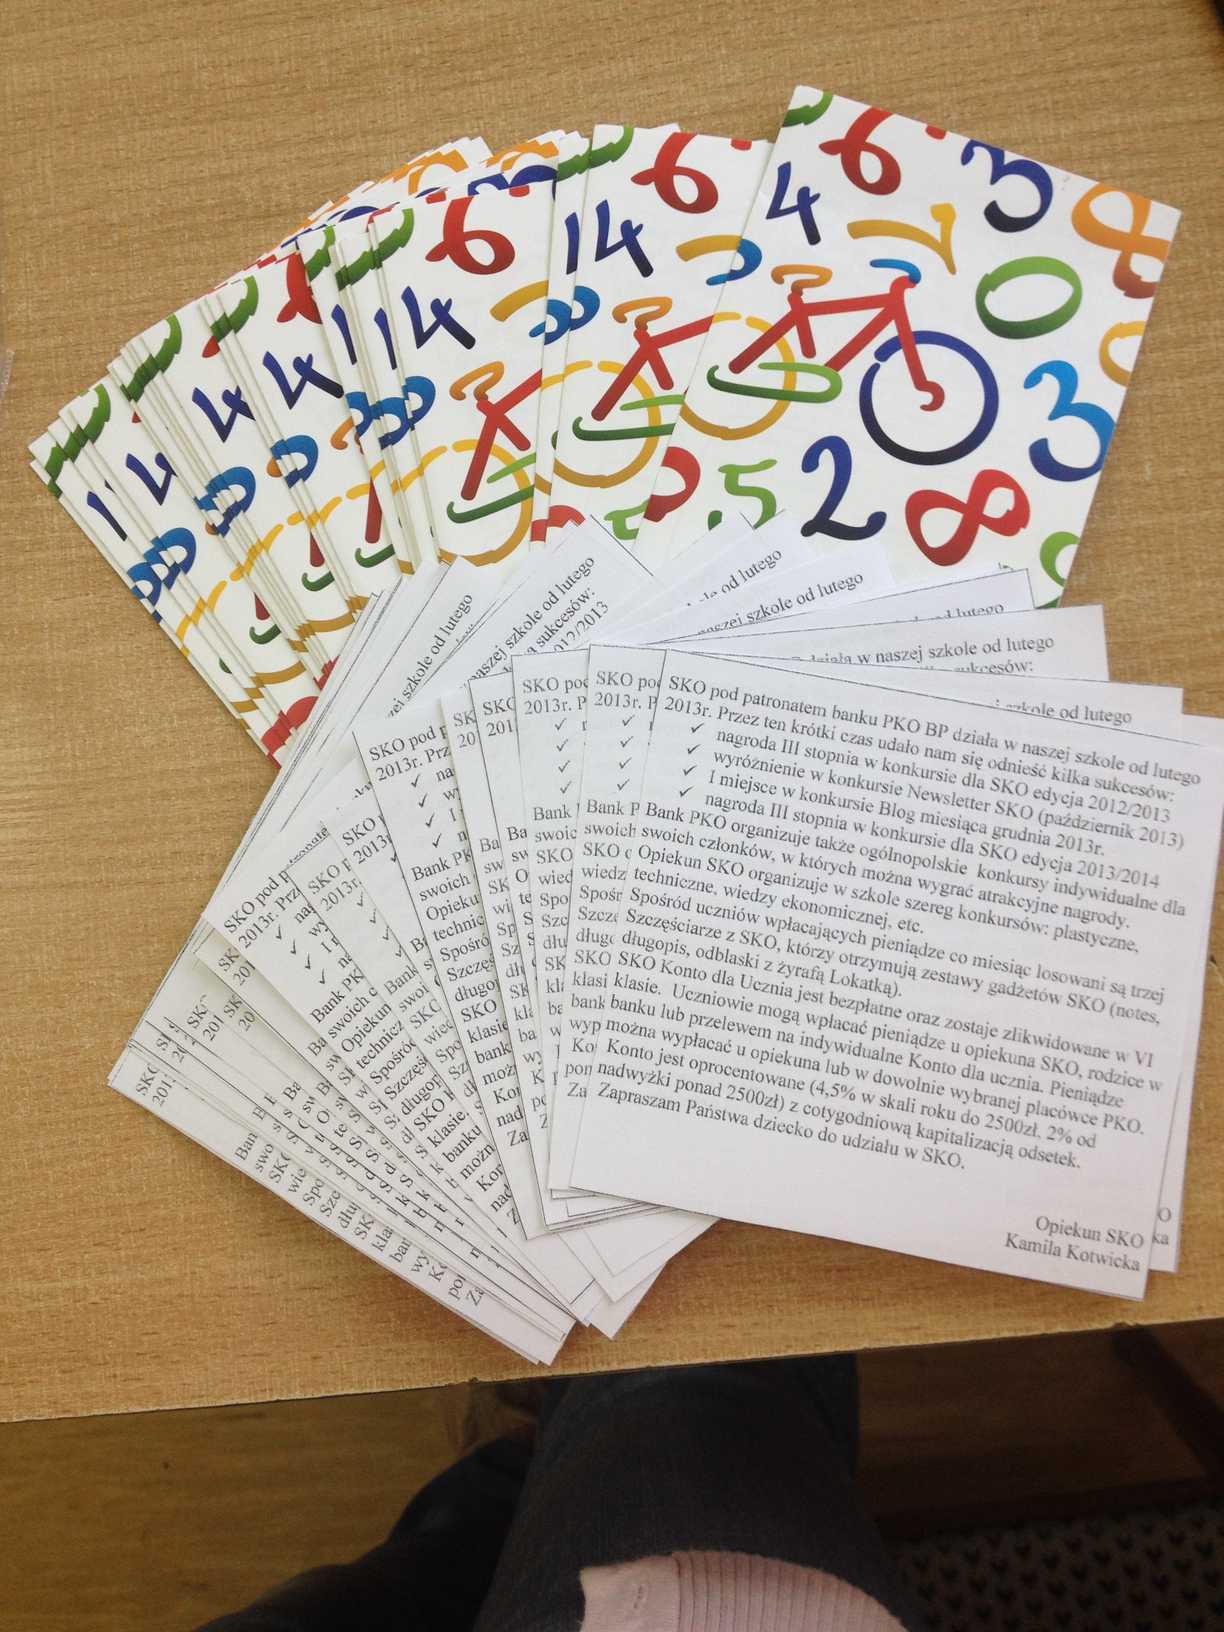 SKO pod patronatem banku PKO BP działa w naszej szkole od lutego
2013r. Przez ten krótki czas udało nam się odnieść kilka sukcesów:
✓ nagroda III stopnia w konkursie dla SKO edycja 2012/2013
✓ wyróżnienie w konkursie Newsletter SKO (październik 2013)
✓ I miejsce w konkursie Blog miesiąca grudnia 2013r.
✓ nagroda III stopnia w konkursie dla SKO edycja 2013/2014
Bank PKO organizuje także ogólnopolskie konkursy indywidualne dla
swoich członków, w których można wygrać atrakcyjne nagrody.
Opiekun SKO organizuje w szkole szereg konkursów: plastyczne,
techniczne, wiedzy ekonomicznej, etc.
Spośród uczniów wpłacających pieniądze co miesiąc losowani są trzej
Szczęściarze z SKO, którzy otrzymują zestawy gadżetów SKO (notes,
długopis, odblaski z żyrafą Lokatką).
SKO Konto dla Ucznia jest bezpłatne oraz zostaje zlikwidowane w VI
klasie. Uczniowie mogą wpłacać pieniądze u opiekuna SKO, rodzice w
banku lub przelewem na indywidualne Konto dla ucznia. Pieniądze
można wypłacać u opiekuna lub w dowolnie wybranej placówce PKO.
Konto jest oprocentowane (4,5% w skali roku do 2500zł, 2% od
nadwyżki ponad 2500zł) z cotygodniową kapitalizacją odsetek.
Zapraszam Państwa dziecko do udziału w SKO.
Opiekun SKO
Kamila Kotwicka